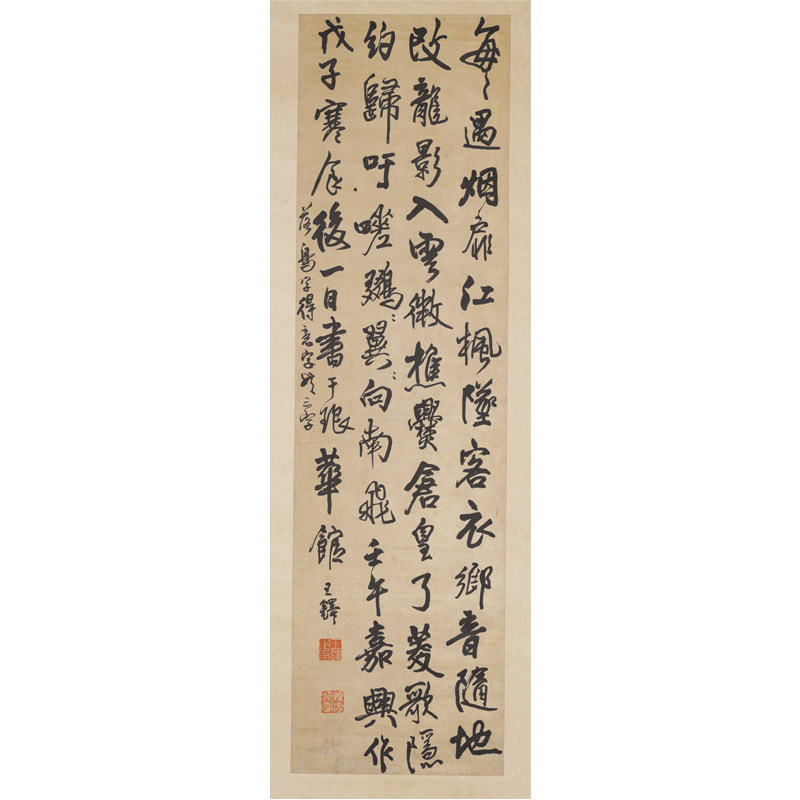 每〻遇烟扉江楓墜客衣鄉音隨地
改龍影入雲微樵爨倉皇了菱歌隱
約歸吁嗟翼向南飛壬午嘉興作
戊子寒食後一日書于琅華館 王鐸
落鳥字得意字三字